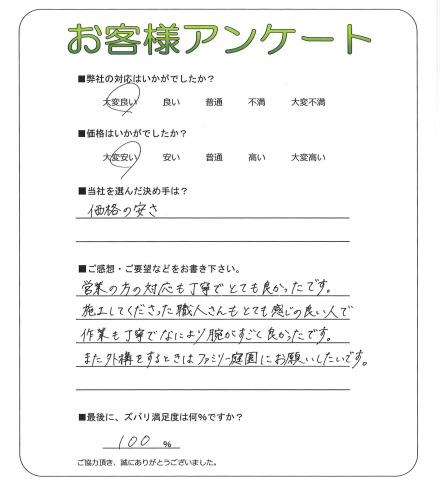 お客様アンケート
■弊社の対応はいかがでしたか？
大変良い 良い 普通 不満 大変不満
■価格はいかがでしたか？
大変安い 安い 普通 高い 大変高い
■当社を選んだ決め手は？
価格の安さ
■ご感想・ご要望などをお書き下さい。
営業の方の対応も丁寧でとても良かったです。
施工してくださった職人さんもとても感じの良い人で
作業も丁寧でなにより腕がすごく良かったです。
また外構をするときはファミリー庭園にお願いしたいです。
■最後に、ズバリ満足度は何％ですか？
100 %
ご協力頂き、誠にありがとうございました。